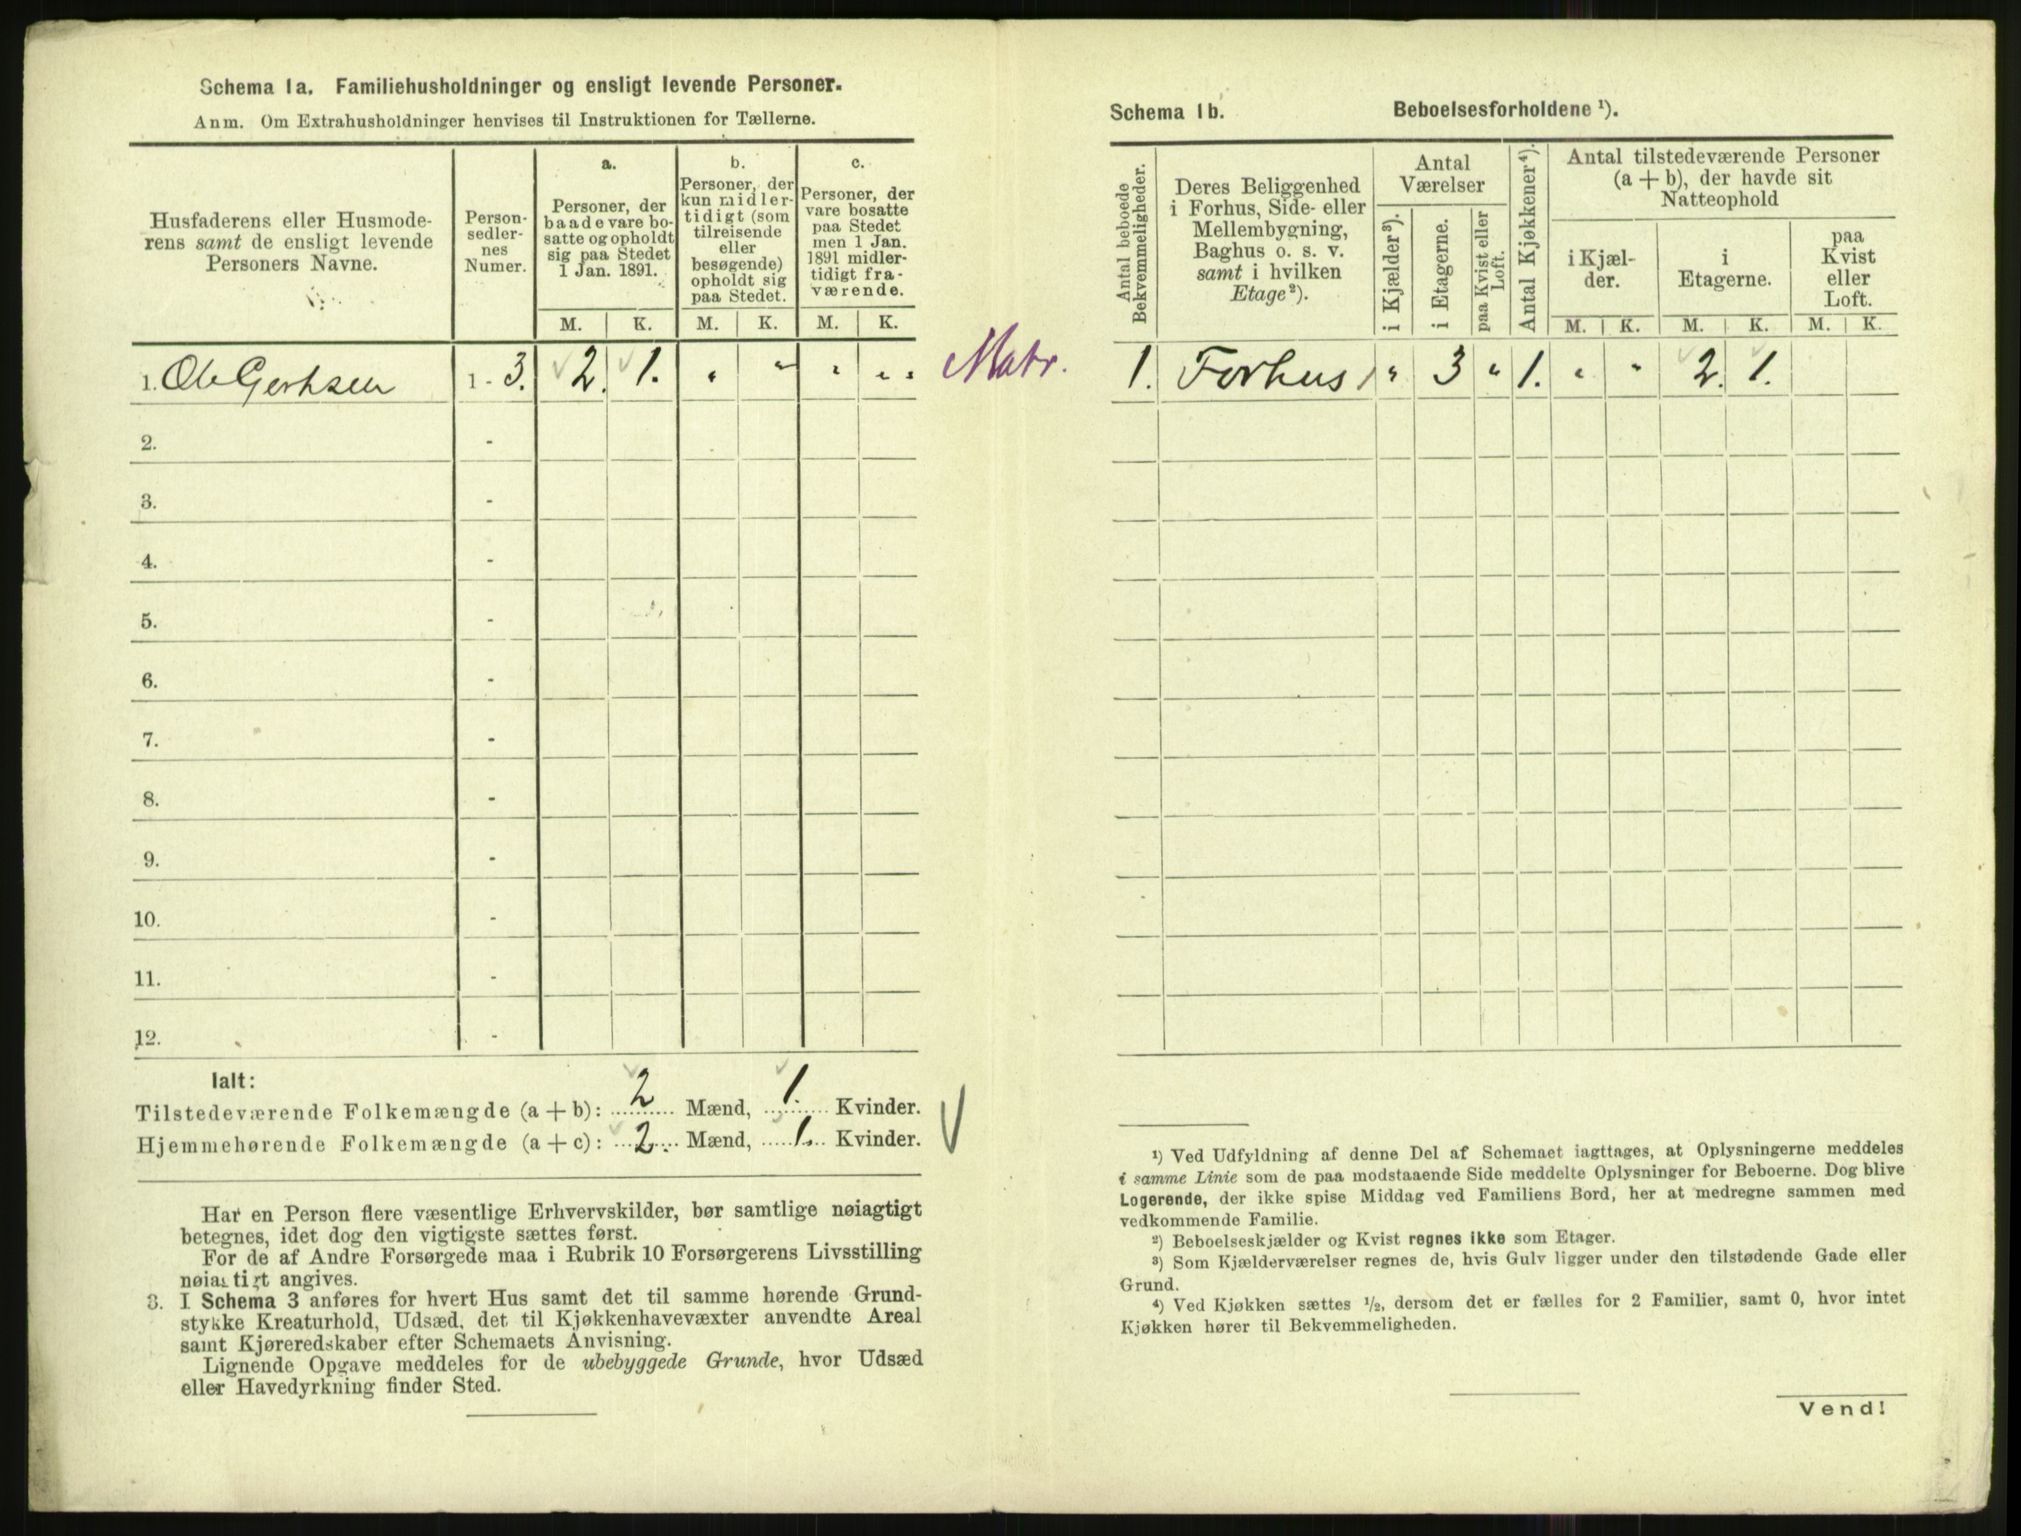 Schema 1a. Familiehusholdninger og ensligt levende Personer.
Anm. Om Extrahusholdninger henvises til Instruktionen for Tællerne.
Husfaderens eller Husmode-
rens samt de ensligt levende
Personers Navne.
Person-
sedler-
nes
Numer.
a.
Personer, der
baade vare bo-
satte og opholdt
sig paa Stedet
1 Jan. 1891.
M. K.
b.
Personer, der
kun midler-
tidigt (som
tilreisende
eller
besøgende)
opholdt sig
paa Stedet.
M. K.
c.
Personer, der
vare bosatte
paa Stedet
men 1 Jan.
1891 midler-
tidigt fra-
værende.
M. K.
1. Ole Gerhsen 1 - 3. 2. 1. " " " "
2. -
3. -
4. -
5. -
6. -
7. -
8. -
9. -
10. -
11. -
12. -
Ialt:
Tilstedeværende Folkemængde (a + b): 2 Mænd, 1. Kvinder.
Hjemmehørende Folkemængde (a + c): 2. Mænd, 1. Kvinder.
Har en Person flere væsentlige Erhvervskilder, bør samtlige nøiagtigt
betegnes, idet dog den vigtigste sættes først.
For de af Andre Forsørgede maa i Rubrik 10 Forsørgerens Livsstilling
nøiagtigt angives.
3. I Schema 3 anføres for hvert Hus samt det til samme hørende Grund-
stykke Kreaturhold, Udsæd, det til Kjøkkenhavevæxter anvendte Areal
samt Kjøreredskaber efter Schemaets Anvisning.
Lignende Opgave meddeles for de ubebyggede Grunde, hvor Udsæd
eller Havedyrkning finder Sted.
Matr.
Schema 1b. Beboelsesforholdene ¹).
Antal beboede
Bekvemmeligheder.
Deres Beliggenhed
i Forhus, Side- eller
Mellembygning,
Baghus o. s. v.
samt i hvilken
Etage²).
Antal
Værelser
i Kjælder³).
i Etagerne.
paa Kvist eller
Loft.
Antal Kjøkkener⁴).
Antal tilstedeværende Personer
(a + b), der havde sit
Natteophold
i Kjæl-
der.
M. K.
i
Etagerne.
M. K.
paa
Kvist
eller
Loft.
M. K.
1. Forhus 1 " 3 " 1. " " 2. 1.
¹) Ved Udfyldning af denne Del af Schemaet iagttages, at Oplysningerne meddeles
i samme Linie som de paa modstaaende Side meddelte Oplysninger for Beboerne. Dog blive
Logerende, der ikke spise Middag ved Familiens Bord, her at medregne sammen med
vedkommende Familie.
²) Beboelseskjælder og Kvist regnes ikke som Etager.
³) Som Kjælderværelser regnes de, hvis Gulv ligger under den tilstødende Gade eller
Grund.
⁴) Ved Kjøkken sættes ½, dersom det er fælles for 2 Familier, samt 0, hvor intet
Kjøkken hører til Bekvemmeligheden.
Vend!